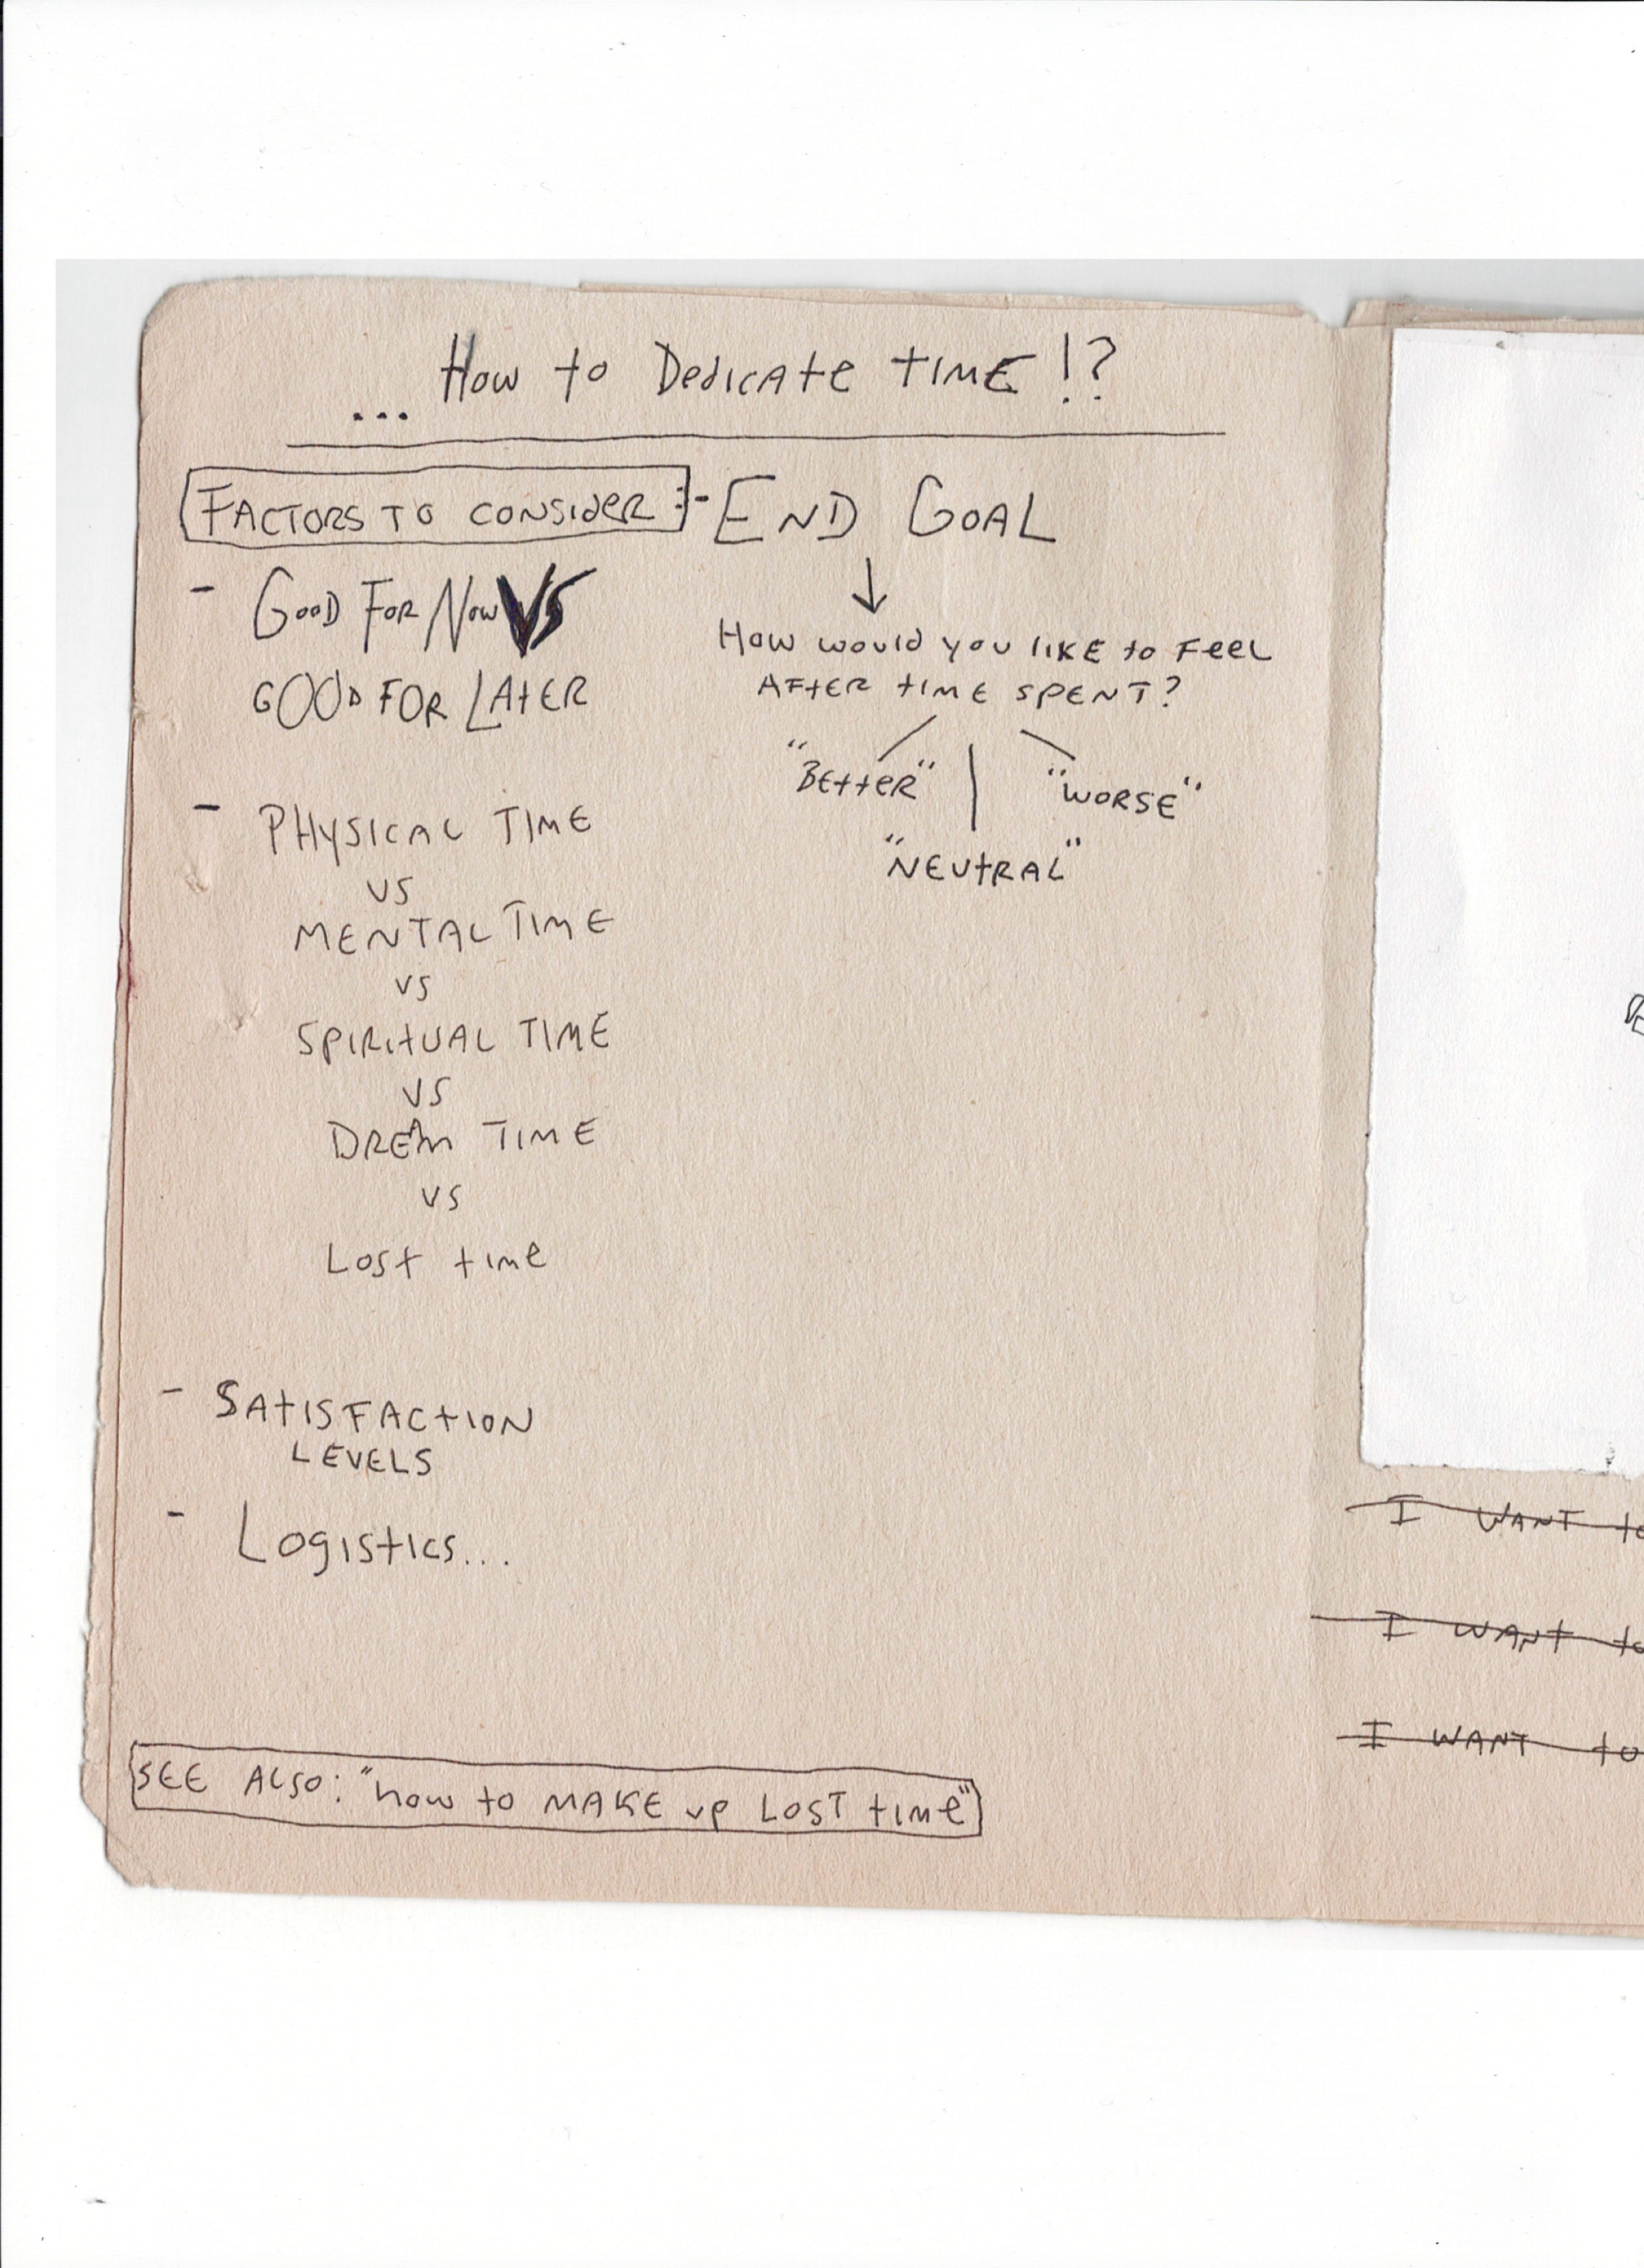 ... How to Dedicate TIME!?
FACTORS TO CONSIDER:
- END GOAL
How would you like to feel
AFTER TIME SPENT?
"Better"
"WORSE"
"NEUTRAL"
- Good For Now VS
GOOD FOR LATER
- PHYSICAL TIME
VS
MENTAL TIME
VS
SPIRITUAL TIME
VS
DREAM TIME
VS
Lost time
- SATISFACTION
LEVELS
- Logistics...
SEE ALSO: "how to MAKE up LOST time"
I WANT to
I WANT to
I WANT to